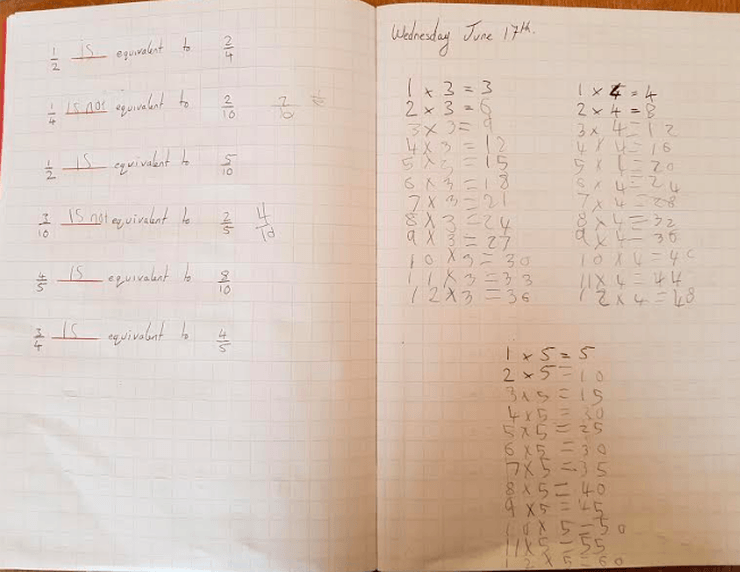 1/2 is equivalent to 2/4
1/4 is not equivalent to 2/10 2/10
1/2 is equivalent to 5/10
3/10 is not equivalent to 2/5 4/10
4/5 is equivalent to 8/10
3/4 is equivalent to 4/5
Wednesday June 17th.
1 x 3 = 3
2 x 3 = 6
3 x 3 = 9
4 x 3 = 12
5 x 3 = 15
6 x 3 = 18
7 x 3 = 21
8 x 3 = 24
9 x 3 = 27
10 x 3 = 30
11 x 3 = 33
12 x 3 = 36
1 x 4 = 4
2 x 4 = 8
3 x 4 = 12
4 x 4 = 16
5 x 4 = 20
6 x 4 = 24
7 x 4 = 28
8 x 4 = 32
9 x 4 = 36
10 x 4 = 40
11 x 4 = 44
12 x 4 = 48
1 x 5 = 5
2 x 5 = 10
3 x 5 = 15
4 x 5 = 30
5 x 5 = 25
6 x 5 = 30
7 x 5 = 35
8 x 5 = 40
9 x 5 = 45
10 x 5 = 50
11 x 5 = 55
12 x 5 = 60